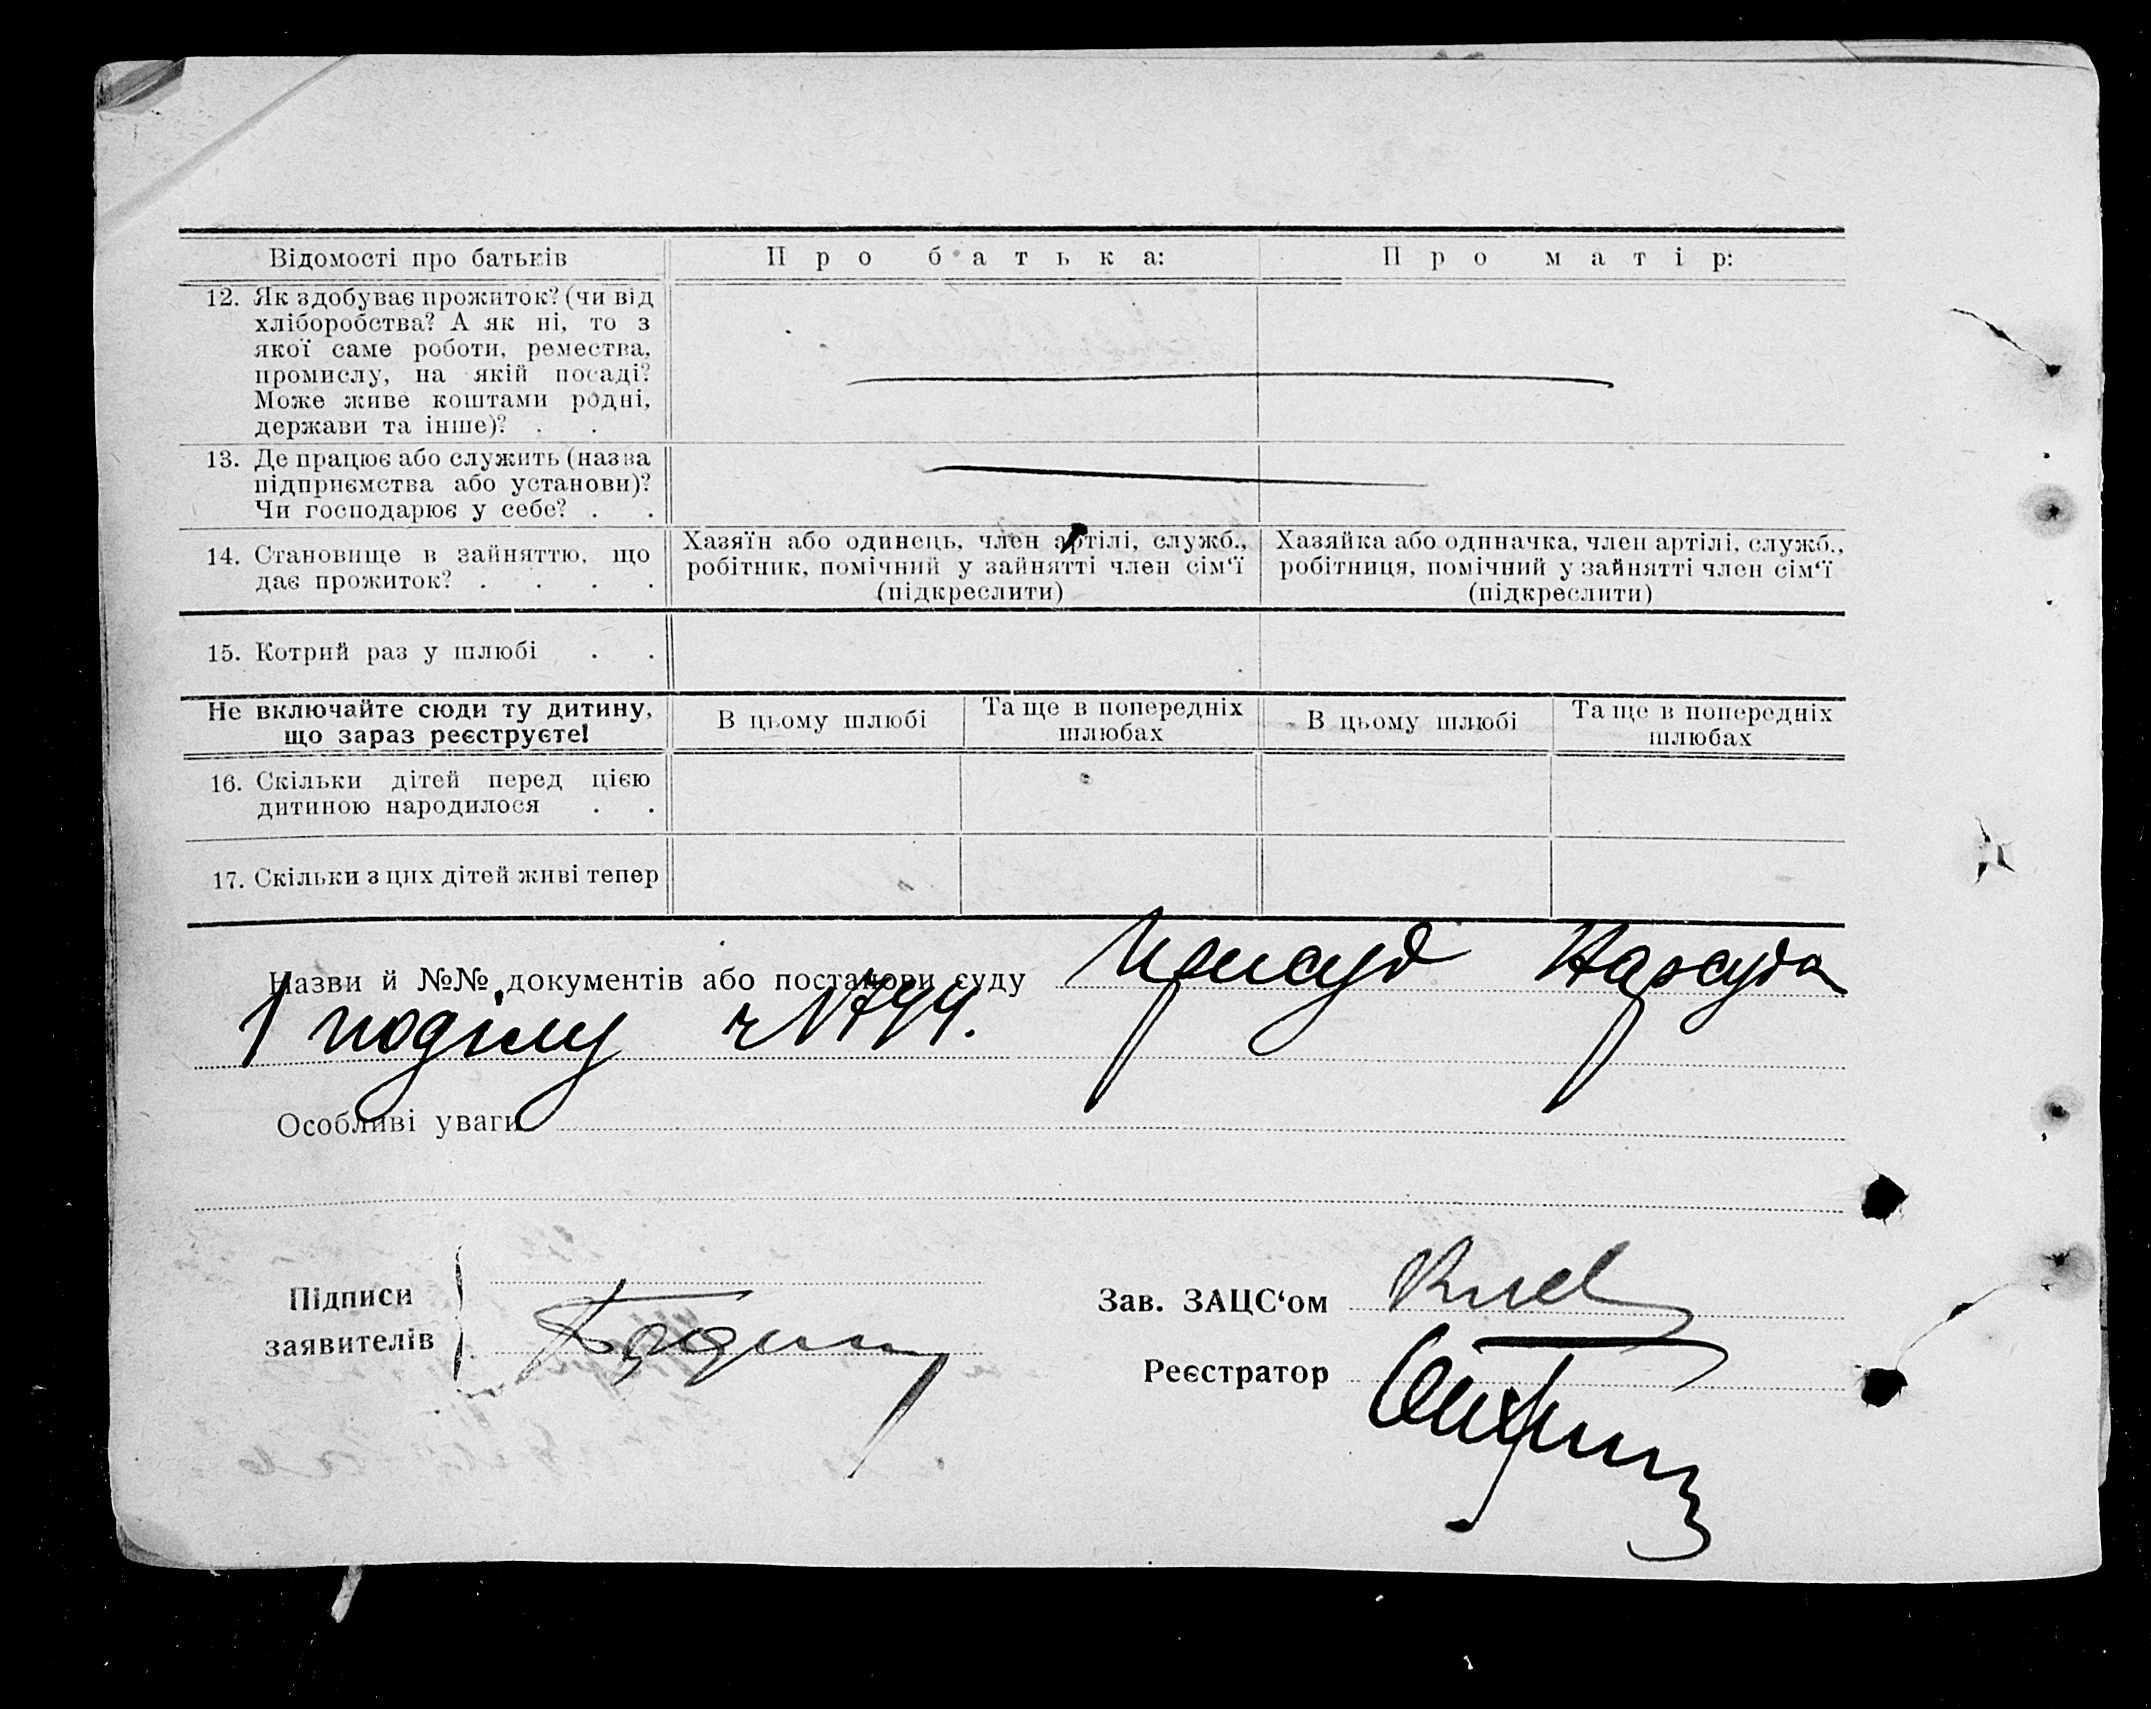 Відомості про батьків
Про батька:
Про матір:
12. Як здобуває прожиток? (чи від
хліборобства? А як ні, то з
якої саме роботи, ремества,
промислу, на якій посаді?
Може живе коштами родні,
держави та інше)? . .
13. Де працює або служить (назва
підприємства або установи)?
Чи господарює у себе? . .
14. Становище в зайняттю, що
дає прожиток? . . . .
Хазяїн або одинець, член артілі, служб.,
робітник, помічний у зайнятті член сім‘ї
(підкреслити)
Хазяйка або одиначка, член артілі, служб.,
робітниця, помічний у зайнятті член сім‘ї
(підкреслити)
15. Котрий раз у шлюбі . .
Не включайте сюди ту дитину,
що зараз реєструєте!
В цьому шлюбі
Та ще в попередніх
шлюбах
В цьому шлюбі
Та ще в попередніх
шлюбах
16. Скільки дітей перед цією
дитиною народилося . .
17. Скільки з цих дітей живі тепер
Назви й №№ документів або постанови суду Присуд Нарсуда
1 поділу
Особливі уваги
Підписи
заявителів
Зав. ЗАЦС‘ом
Реєстратор